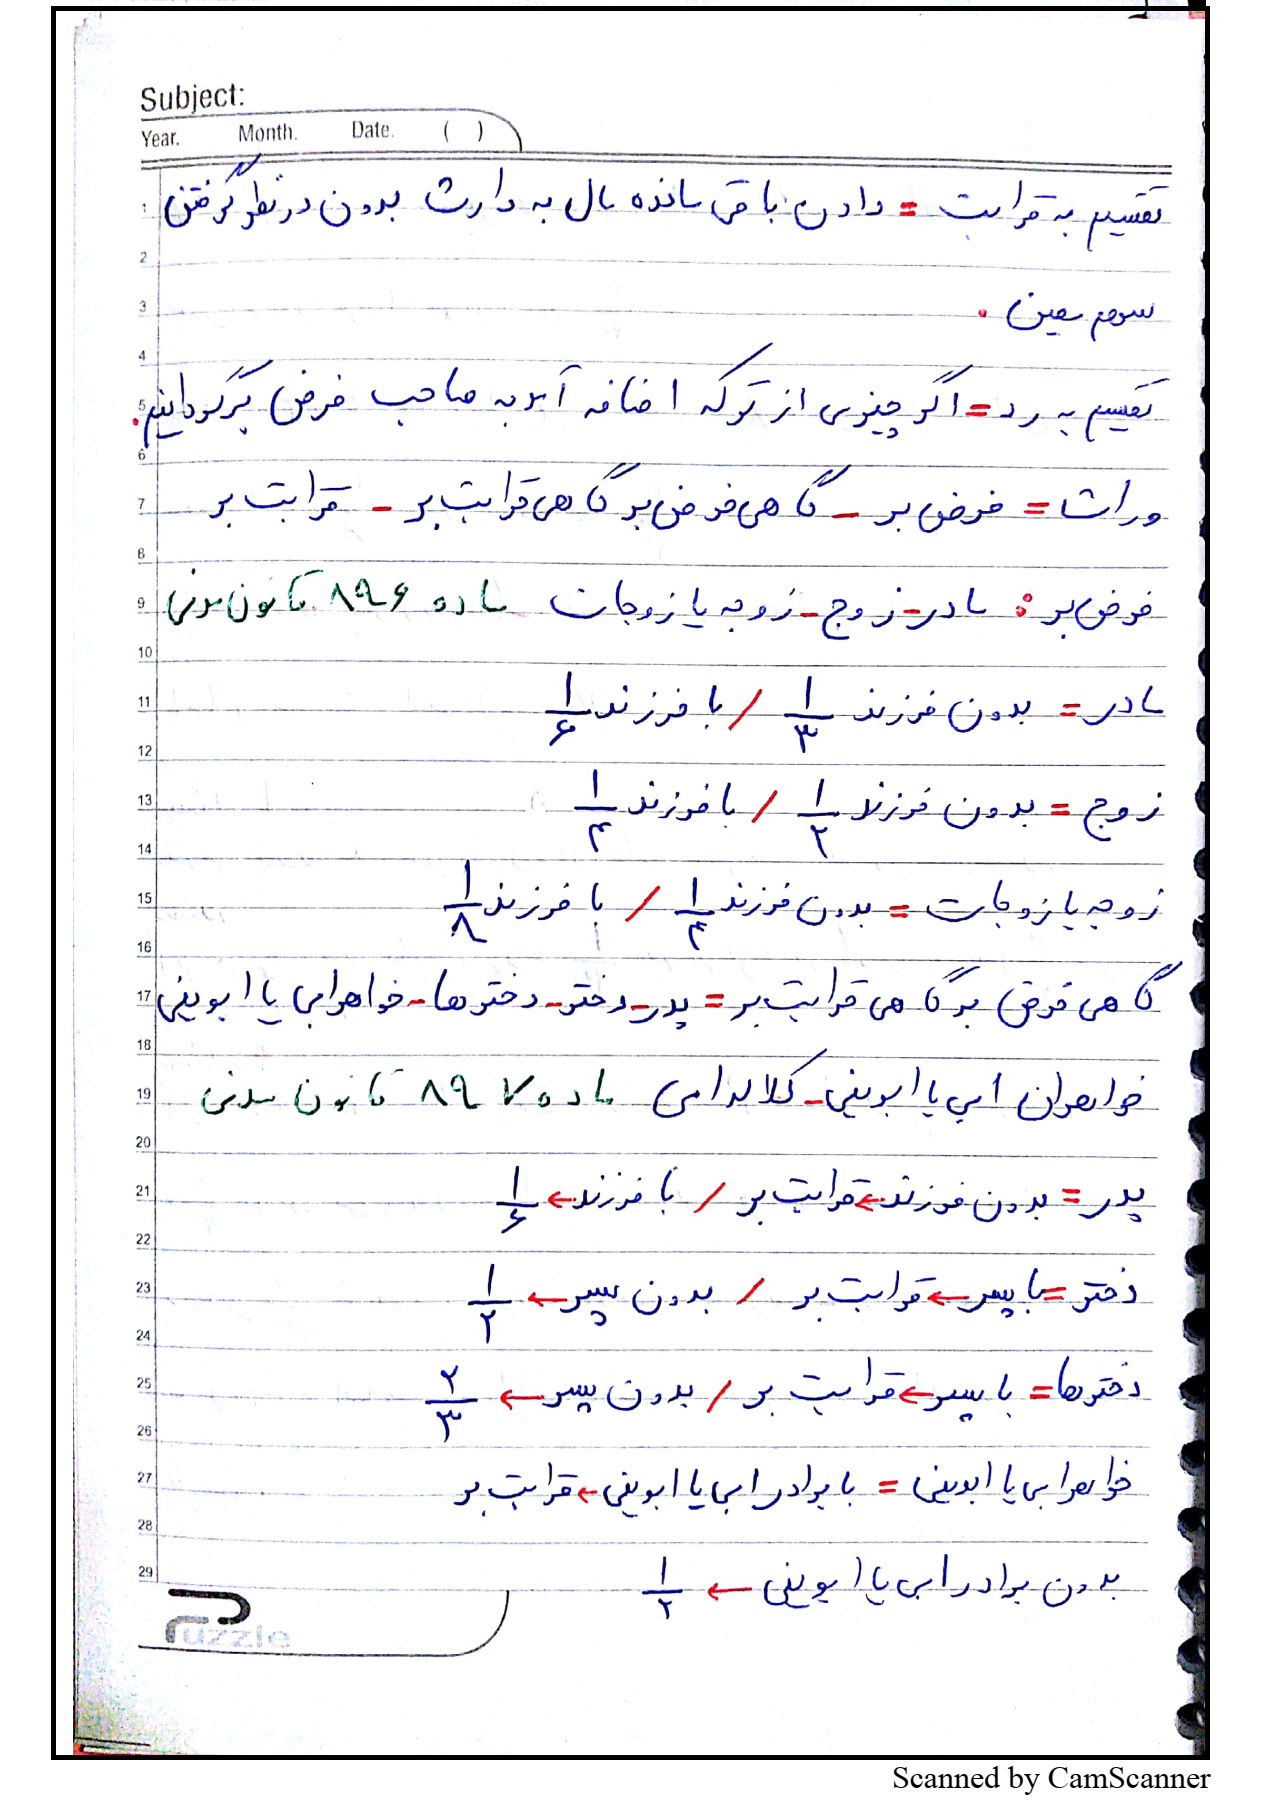 Subject:
Year. Month. Date. ( )
تقسیم به قرابت = دادن باقی مانده مال به وارث بدون در نظر گرفتن
سهم معین.
تقسیم به رد = اگر چیزی از ترکه اضافه آمد به صاحب فرض برگردانیم.
وراث = فرض بر - گاهی فرض بر گاهی قرابت بر - قرابت بر
فرض بر: مادر - زوج - زوجه یا زوجات ماده ۸۹۶ قانون مدنی
مادر = بدون فرزند ۱/۳ / با فرزند ۱/۶
زوج = بدون فرزند ۱/۲ / با فرزند ۱/۴
زوجه یا زوجات = بدون فرزند ۱/۴ / با فرزند ۱/۸
گاهی فرض بر گاهی قرابت بر = پدر - دختر - دخترها - خواهر ابی یا ابوینی
خواهران ابی یا ابوینی - کلاله امی ماده ۸۹۷ قانون مدنی
پدر = بدون فرزند ← قرابت بر / با فرزند ← ۱/۶
دختر = با پسر ← قرابت بر / بدون پسر ← ۱/۲
دخترها = با پسر ← قرابت بر / بدون پسر ← ۲/۳
خواهر ابی یا ابوینی = با برادر ابی یا ابوینی ← قرابت بر
بدون برادر ابی یا ابوینی ← ۱/۲
Puzzle
Scanned by CamScanner